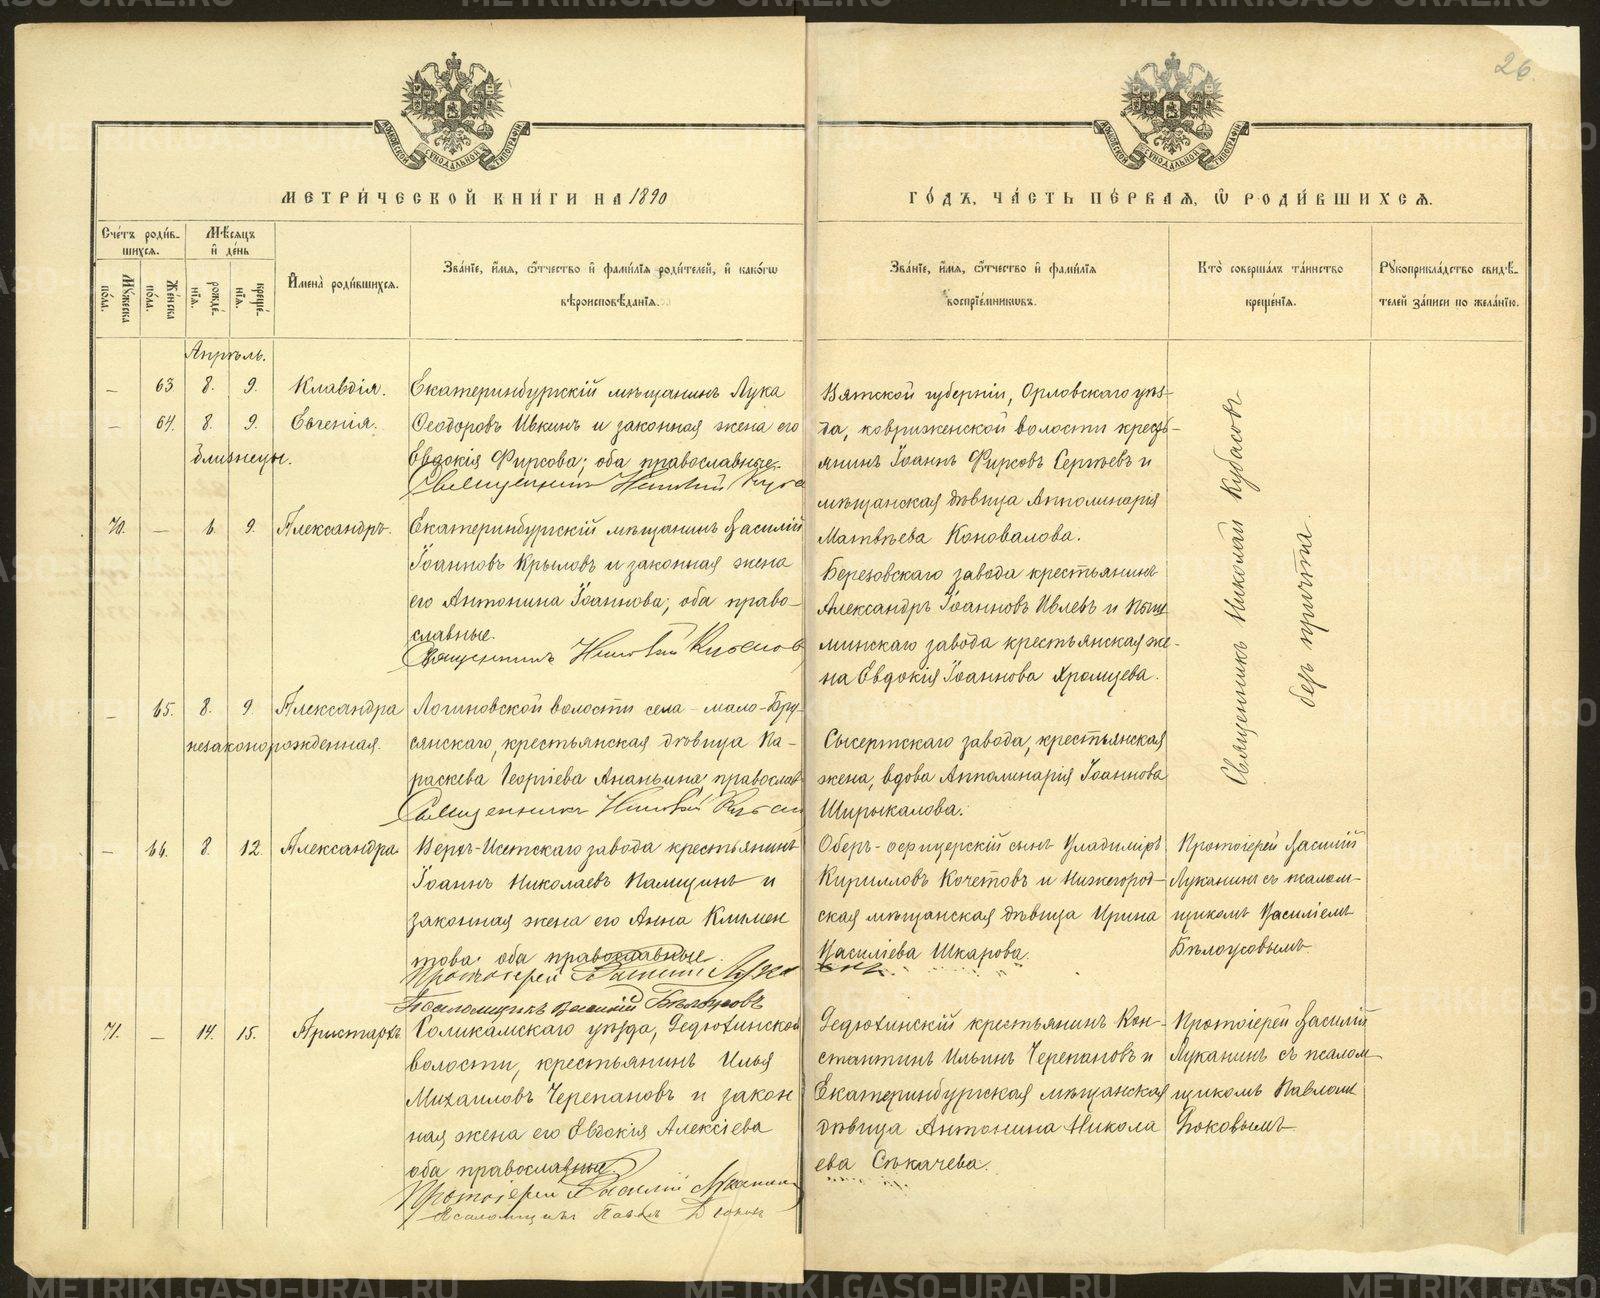 26
МОСКОВСКОЙ СѴНОДАЛЬНОЙ ТИПОГРАФІИ
МОСКОВСКОЙ СѴНОДАЛЬНОЙ ТИПОГРАФІИ
МЕТРИ́ЧЕСКОЙ КНИ́ГИ НА 1890
ГО́ДЪ, ЧА́СТЬ ПЕ́РВАЯ, Ѿ РОДИ́ВШИХСЯ.
Сче́тъ роди́в-
шихся.
Мꙋ́жеска по́ла.
Же́нска по́ла.
Мѣ́сяцъ
и҆ де́нь
рожде́-
нїя.
креще́-
нїя.
И҆мена̀ роди́вшихся.
Зва́нїе, и҆́мя, ѻ҆́тчество и҆ фами́лїя роди́телей, и҆ како́гѡ
вѣроисповѣ́данїя.
Зва́нїе, и҆́мя, ѻ҆́тчество и҆ фами́лїя
воспрїе́мникѡвъ.
Кто̀ соверша́лъ та́инство
креще́нїя.
Рꙋкоприкла́дство свидѣ́-
телей за́писи по жела́нїю.
Апрѣль.
— 63 8. 9. Клавдія.
— 64. 8. 9. Евгенія.
близнецы.
Екатеринбургскій мѣщанинъ Лука
Ѳеодоровъ Ивкинъ и законная жена его
Евдокія Фирсова; оба православные.
Священникъ Николай
Вятской губерніи, Орловскаго уѣз-
да, ковриженской волости кресть-
янинъ Іоаннъ Фирсовъ Сергѣевъ и
мѣщанская дѣвица Апполинарія
Матвѣева Коновалова.
Священникъ Николай Кубасовъ
безъ причта.
70. — 6. 9. Александръ.
Екатеринбургскій мѣщанинъ Василій
Іоанновъ Крыловъ и законная жена
его Антонина Іоаннова; оба право-
славные.
Священникъ Николай Кубасов
Березовскаго завода крестьянинъ
Александръ Іоанновъ Ивлевъ и Пыш
минскаго завода крестьянская же-
на Евдокія Іоаннова Хромцева.
— 65. 8. 9. Александра
незаконорожденная.
Логиновской волости села - мало-Бру-
сянскаго, крестьянская дѣвица Па-
раскева Георгіева Ананьина; православ
Священникъ Николай Кубасов
Сысертскаго завода, крестьянская
жена, вдова Апполинарія Іоаннова
Ширыкалова.
— 66. 8. 12. Александра
Верхъ-Исетскаго завода крестьянинъ
Іоаннъ Николаевъ Памщинъ и
законная жена его Анна Климен
това: оба православные.
Протоіерей Василій Лука
Псаломщикъ Василій Бѣлоусовъ
Оберъ-офицерскій сынъ Владиміръ
Кирилловъ Кочетовъ и Нижегород-
ская мѣщанская дѣвица Ирина
Василіева Шкарова.
Протоіерей Василій
Луканинъ съ псалом-
щикомъ Василіемъ
Бѣлоусовымъ
71. — 14. 15. Аристархъ
Соликамскаго уѣзда, Дедюхинской
волости, крестьянинъ Илья
Михаиловъ Черепановъ и закон
ная жена его Евдокія Алексіева
оба православные.
Протоіерей Василій Луканин
Псаломщикъ Павелъ
Дедюхинскій крестьянинъ Кон-
стантинъ Ильинъ Черепановъ и
Екатеринбургская мѣщанская
дѣвица Антонина Никола
ева Сѣкачева.
Протоіерей Василій
Луканинъ съ псалом
щикомъ Павломъ
METRIKI.GASO-URAL.RU